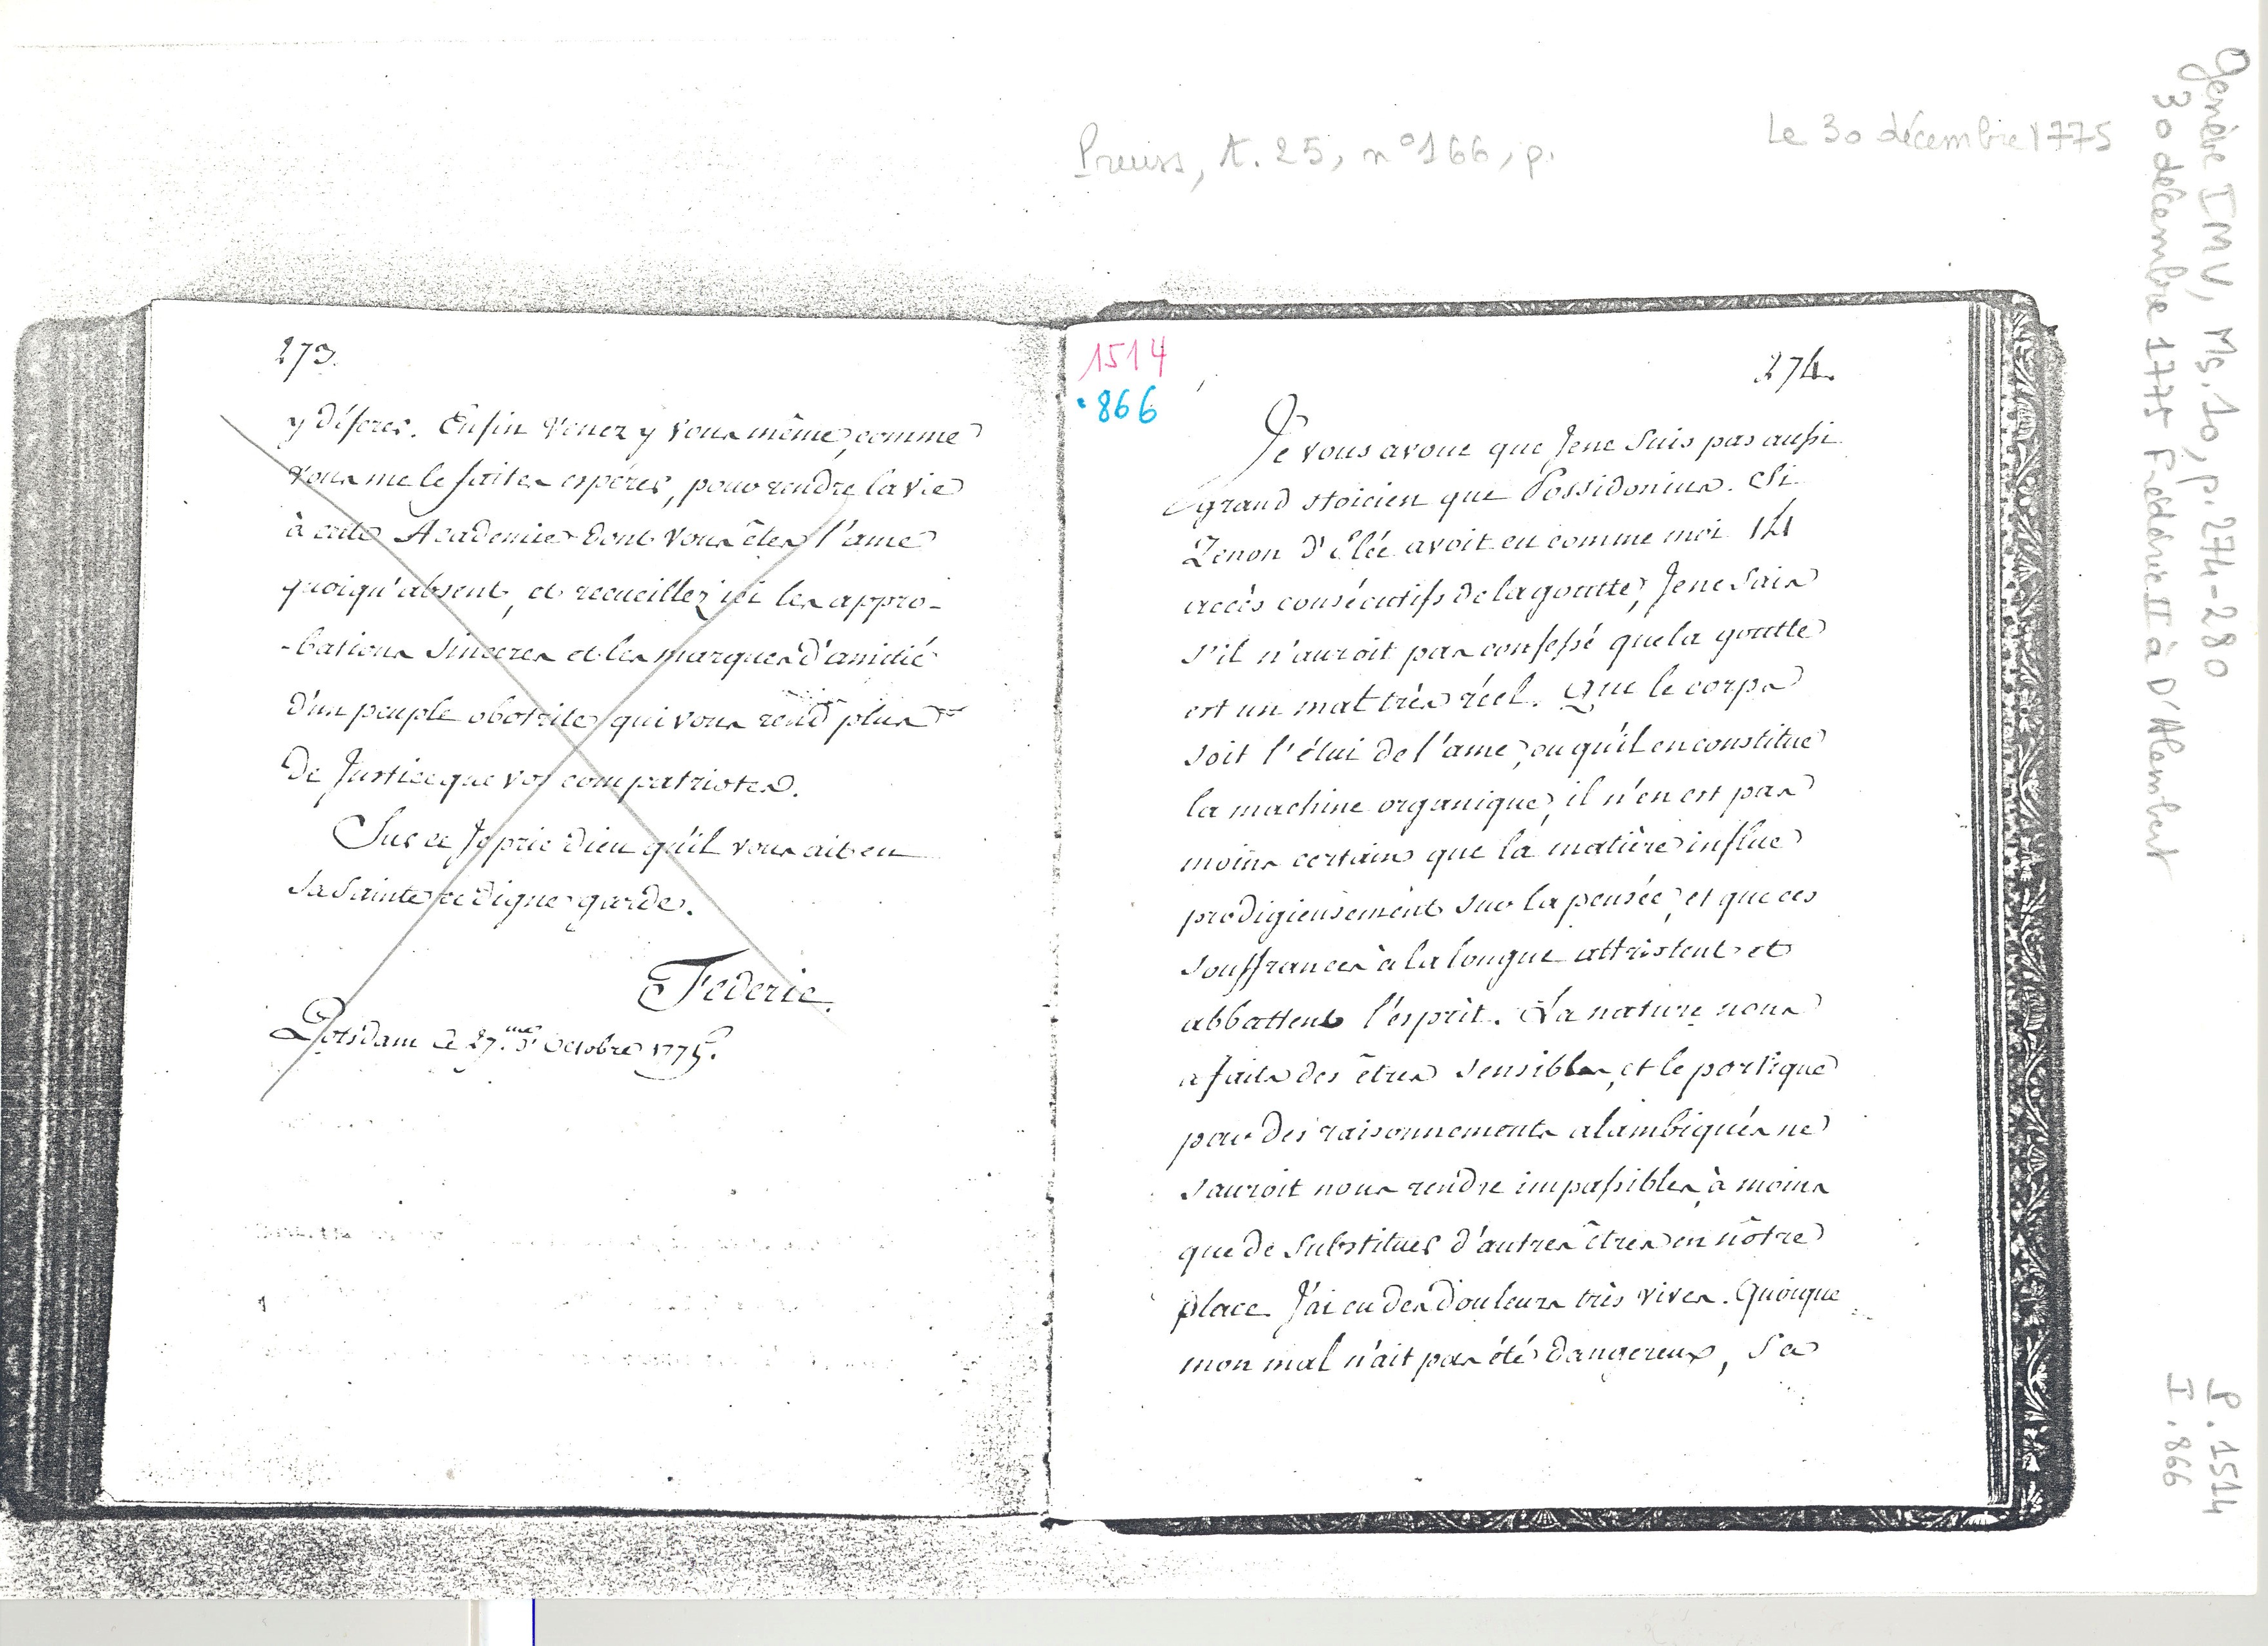 Preuss, t. 25, n° 166, p.
Le 30 décembre 1775
Genève IMV, Ms. 10, p. 274-280
30 décembre 1775 Frédéric II à D'Alembert
P. 1514
I. 866
273.
y déférer. Enfin venez y vous même, comme
vous me le faites espérer, pour rendre la vie
à cette Academie dont vous êtes l'ame
quoiqu'absent, et recueillez ici les appro-
-bations sincéres et les marques d'amitié
d'un peuple obotrite qui vous rend plus
de Justice que vos compatriotes.
Sur ce Je prie Dieu qu'il vous ait en
sa sainte et digne garde.
Féderic.
Potsdam ce 27.me d'Octobre 1775.
1514
866
274.
Je vous avoue que Je ne suis pas aussi
grand stoïcien que Possidonius. Si
Zenon d'Elée avoit eu comme moi 14
accès consécutifs de la goutte, Je ne sais
s'il n'auroit pas confessé que la goutte
est un mal très réel. Que le corps
soit l'étui de l'ame, ou qu'il en constitue
la machine organique, il n'en est pas
moins certain que la matière influe
prodigieusement sur la pensée, et que ces
souffrances à la longue attristent et
abbattent l'esprit. La nature nous
a faits des êtres sensibles, et le portique
par des raisonnements alambiqués ne
sauroit nous rendre impassibles, à moins
que de substituer d'autres êtres en nôtre
place. J'ai eu des douleurs très vives. Quoique
mon mal n'ait pas été dangereux, sa